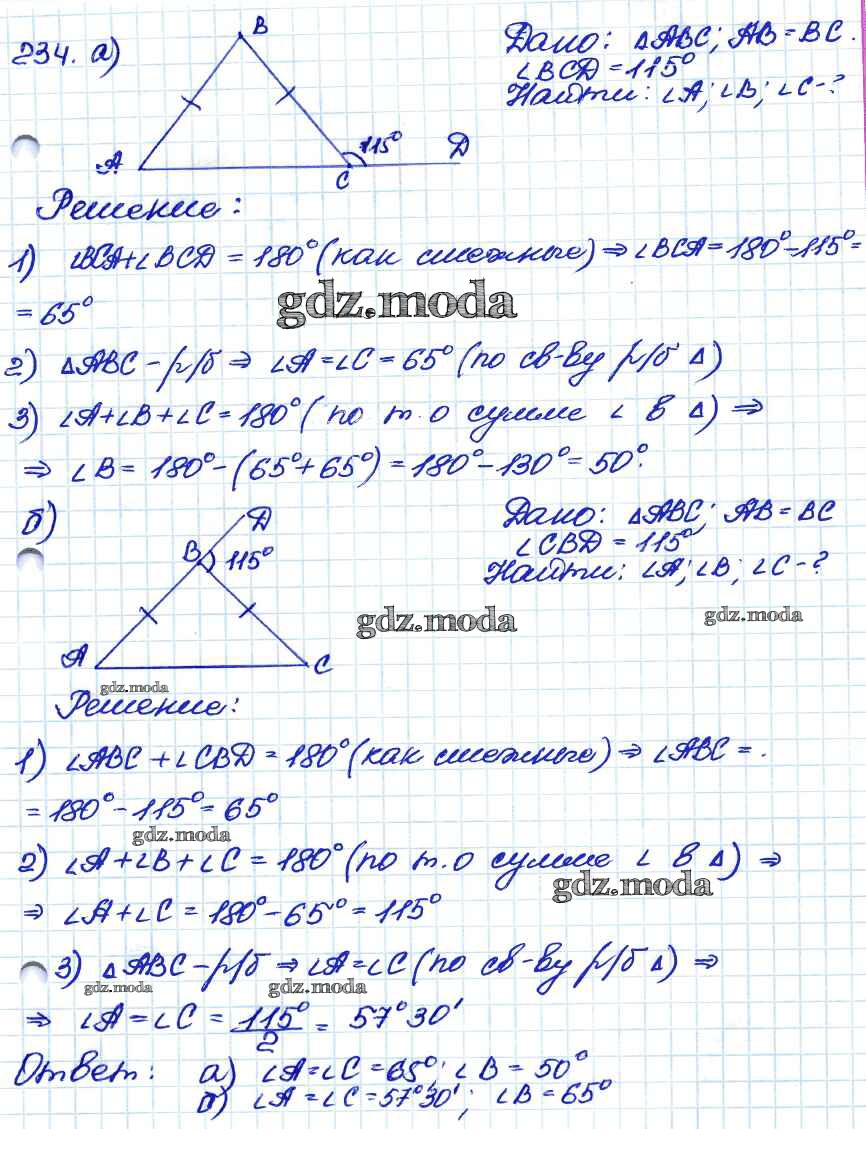 234. а)
B
A
C
115°
D
Дано: ΔABC; AB = BC.
∠BCD = 115°
Найти: ∠A; ∠B; ∠C - ?
Решение:
1) ∠BCA+∠BCD = 180° (как смежные) ⇒ ∠BCA = 180°-115° =
= 65°
gdz.moda
2) ΔABC – р/б ⇒ ∠A = ∠C = 65° (по св-ву р/б Δ)
3) ∠A+∠B+∠C = 180° (по т. о сумме ∠ в Δ) ⇒
⇒ ∠B = 180° - (65°+65°) = 180° - 130° = 50°.
б)
D
B
115°
A
C
Дано: ΔABC; AB = BC
∠CBD = 115°
Найти: ∠A; ∠B; ∠C - ?
gdz.moda
gdz.moda
gdz.moda
Решение:
1) ∠ABC + ∠CBD = 180° (как смежные) ⇒ ∠ABC = .
= 180° - 115° = 65°
gdz.moda
2) ∠A+∠B+∠C = 180° (по т. о сумме ∠ в Δ) ⇒
gdz.moda
⇒ ∠A+∠C = 180° - 65° = 115°
3) ΔABC – р/б ⇒ ∠A = ∠C (по св-ву р/б Δ) ⇒
gdz.moda
gdz.moda
⇒ ∠A = ∠C = 115°/2 = 57°30'
Ответ: а) ∠A = ∠C = 65°; ∠B = 50°
б) ∠A = ∠C = 57°30'; ∠B = 65°